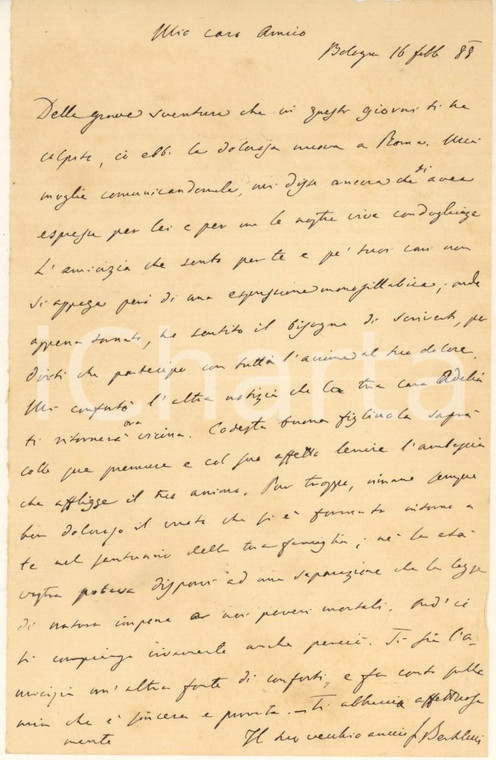 Mio caro Amico
Bologna 16 febb 88
Della grave sventura che in questi giorni ti ha
colpito, io ebbi la dolorosa nuova a Roma. Mia
moglie comunicandomela, mi disse ancora che ti avea
espresse per lei e per me le nostre vive condoglianze
L'amicizia che sento per te e pe' tuoi cari non
si appaga però di una espressione monosillabica; onde
appena tornato, ho sentito il bisogno di scriverti, per
dirti che partecipo con tutta l'anima al tuo dolore.
Mi confortò l'altra notizia che la tua cara Adelia
ti ritornerà ora vicina. Codesta buona figliuola saprà
colle sue premure e col suo affetto lenire l'ambascia
che affligge il tuo animo. Pur troppo, rimane sempre
ben doloroso il vuoto che si è formato intorno a
te nel santuario della tua famiglia; nè la età
vostra poteva disporvi ad una separazione che la legge
di natura impone a noi poveri mortali. Ond'io
ti compiango vivamente anche perciò. Ti sia l'a-
micizia un'altra fonte di conforti, e fa conto sulla
mia che è sincera e provata. — Ti abbraccio affettuosa
mente Il tuo vecchio amico
iCharta